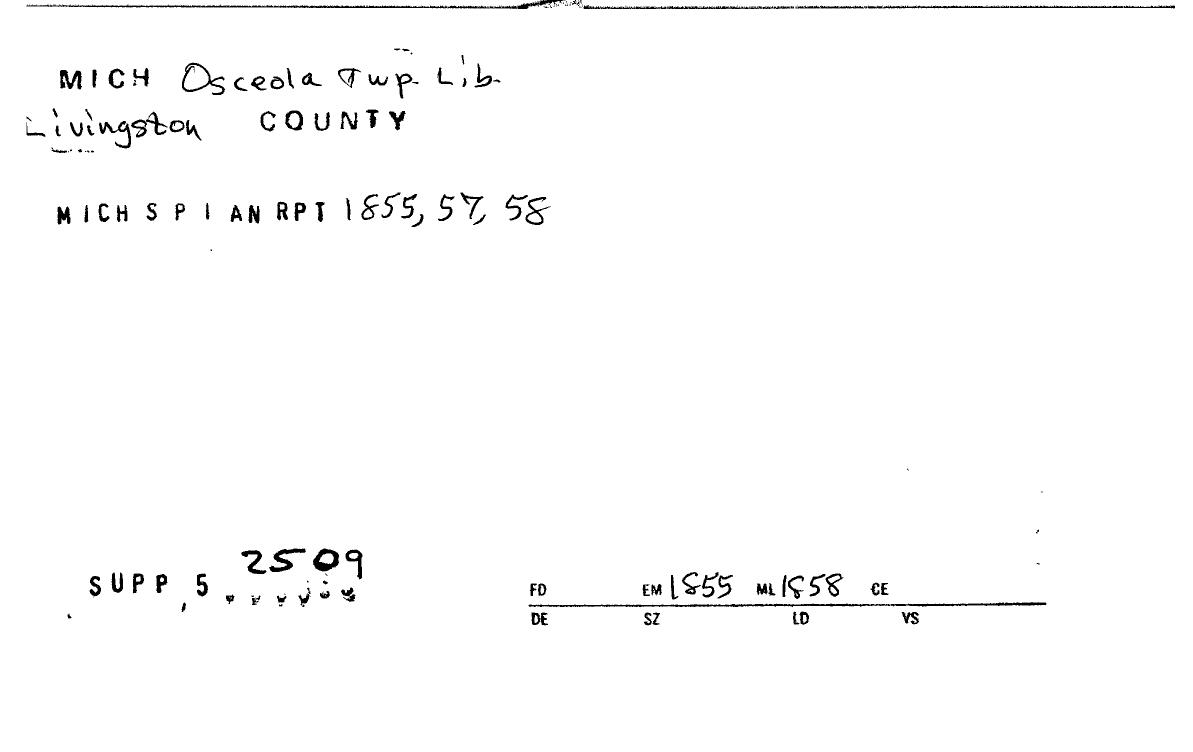 MICH Osceola Twp. Lib.
Livingston COUNTY
MICH S P I AN RPT 1855, 57, 58
SUPP, 5 2509
FD EM 1855 ML 1858 CE
DE SZ LD VS